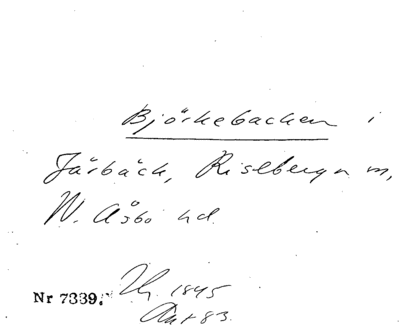 Björkebacken i
Järbäck, Riseberga sn,
N. Åsbo hd.
Nr 7339. 1845
Akt 83.